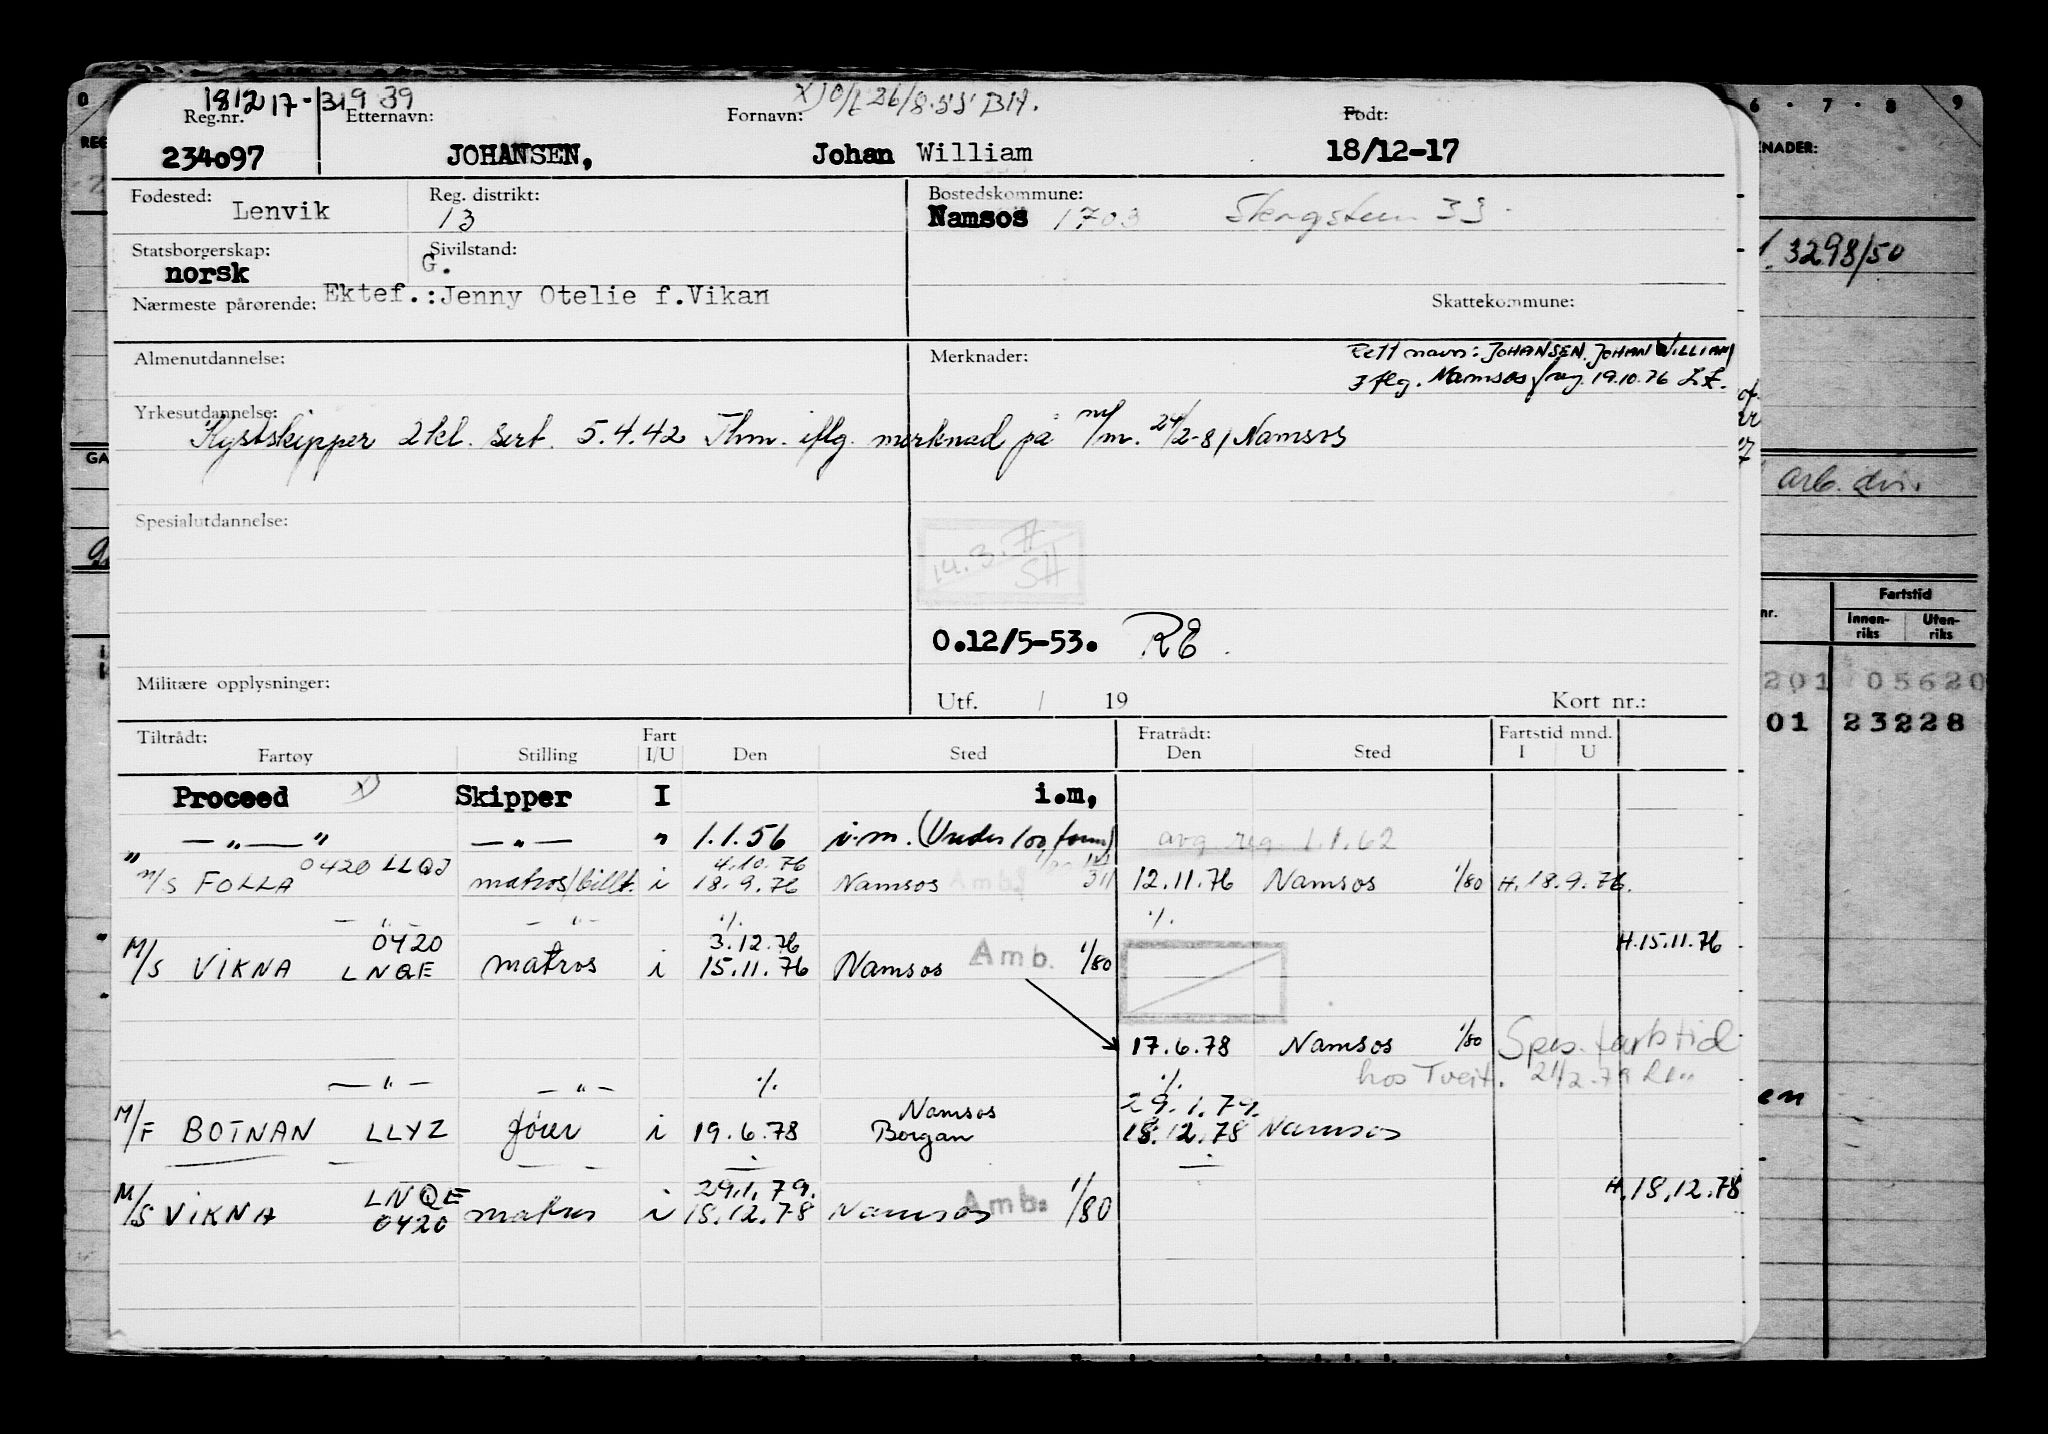 181217-31939 X) O/L 26/8-55 BH.
Reg.nr. Etternavn: Fornavn: Født:
234097 JOHANSEN, Johan William 18/12-17
Fødested: Lenvik Reg. distrikt: 13 Bostedskommune: Namsos 1703
Statsborgerskap: norsk Sivilstand: G.
Nærmeste pårørende: Ektef.:Jenny Otelie f.Vikan Skattekommune:
Almenutdannelse: Merknader: Rett navn: JOHANSEN, JOHAN WILLIAM
iflg. Namsos 19.10.76
Yrkesutdannelse: Kystskipper 2kl. sert. 5.4.42 Thm. iflg. merknad på m/m. 24/2-81 Namsos
Spesialutdannelse: 14.3.77 SH
O.12/5-53. RE.
Militære opplysninger: Utf. / 19 Kort nr.:
Tiltrådt: Fart Fratrådt: Fartstid mnd.
Fartøy Stilling I/U Den Sted Den Sted I U
Proceed X) Skipper I i.m,
" — „ — " — „ — " 1.1.56 i.m. (Under 100 avg reg. 1.1.62
0420 LLQJ 4.10.76
M/S FOLLA matros/billt. i 18.9.76 Namsos 12.11.76 Namsos 1/80 H.18.9.76.
— „ — — „ — ./. ./.
0420 3.12.76 Amb. H.15.11.76
M/S VIKNA LNQE matros i 15.11.76 Namsos 1/80
17.6.78 Namsos 1/80 Spes. fartstid
hos Tveit. 21/2-79
— „ — — „ — ./. ./.
Namsos 29.1.79.
M/F BOTNAN LLYZ i 19.6.78 Borgan 18.12.78 Namsos
LNQE 29.1.79. Amb. H.18.12.78
M/S VIKNA 0420 matros i 18.12.78 Namsos 1/80
6 · 7 · 8 9
3298/50
arb.
Fartstid
Innen-riks Uten-riks
201 05620
01 23228